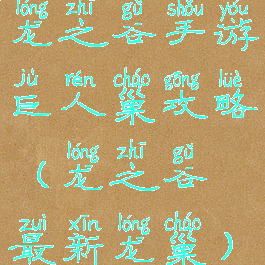 lóng zhī gǔ shǒu yóu
龙之谷手游
jù rén cháo gōng lüè
巨人巢攻略
lóng zhī gǔ
(龙之谷
zuì xīn lóng cháo
最新龙巢)